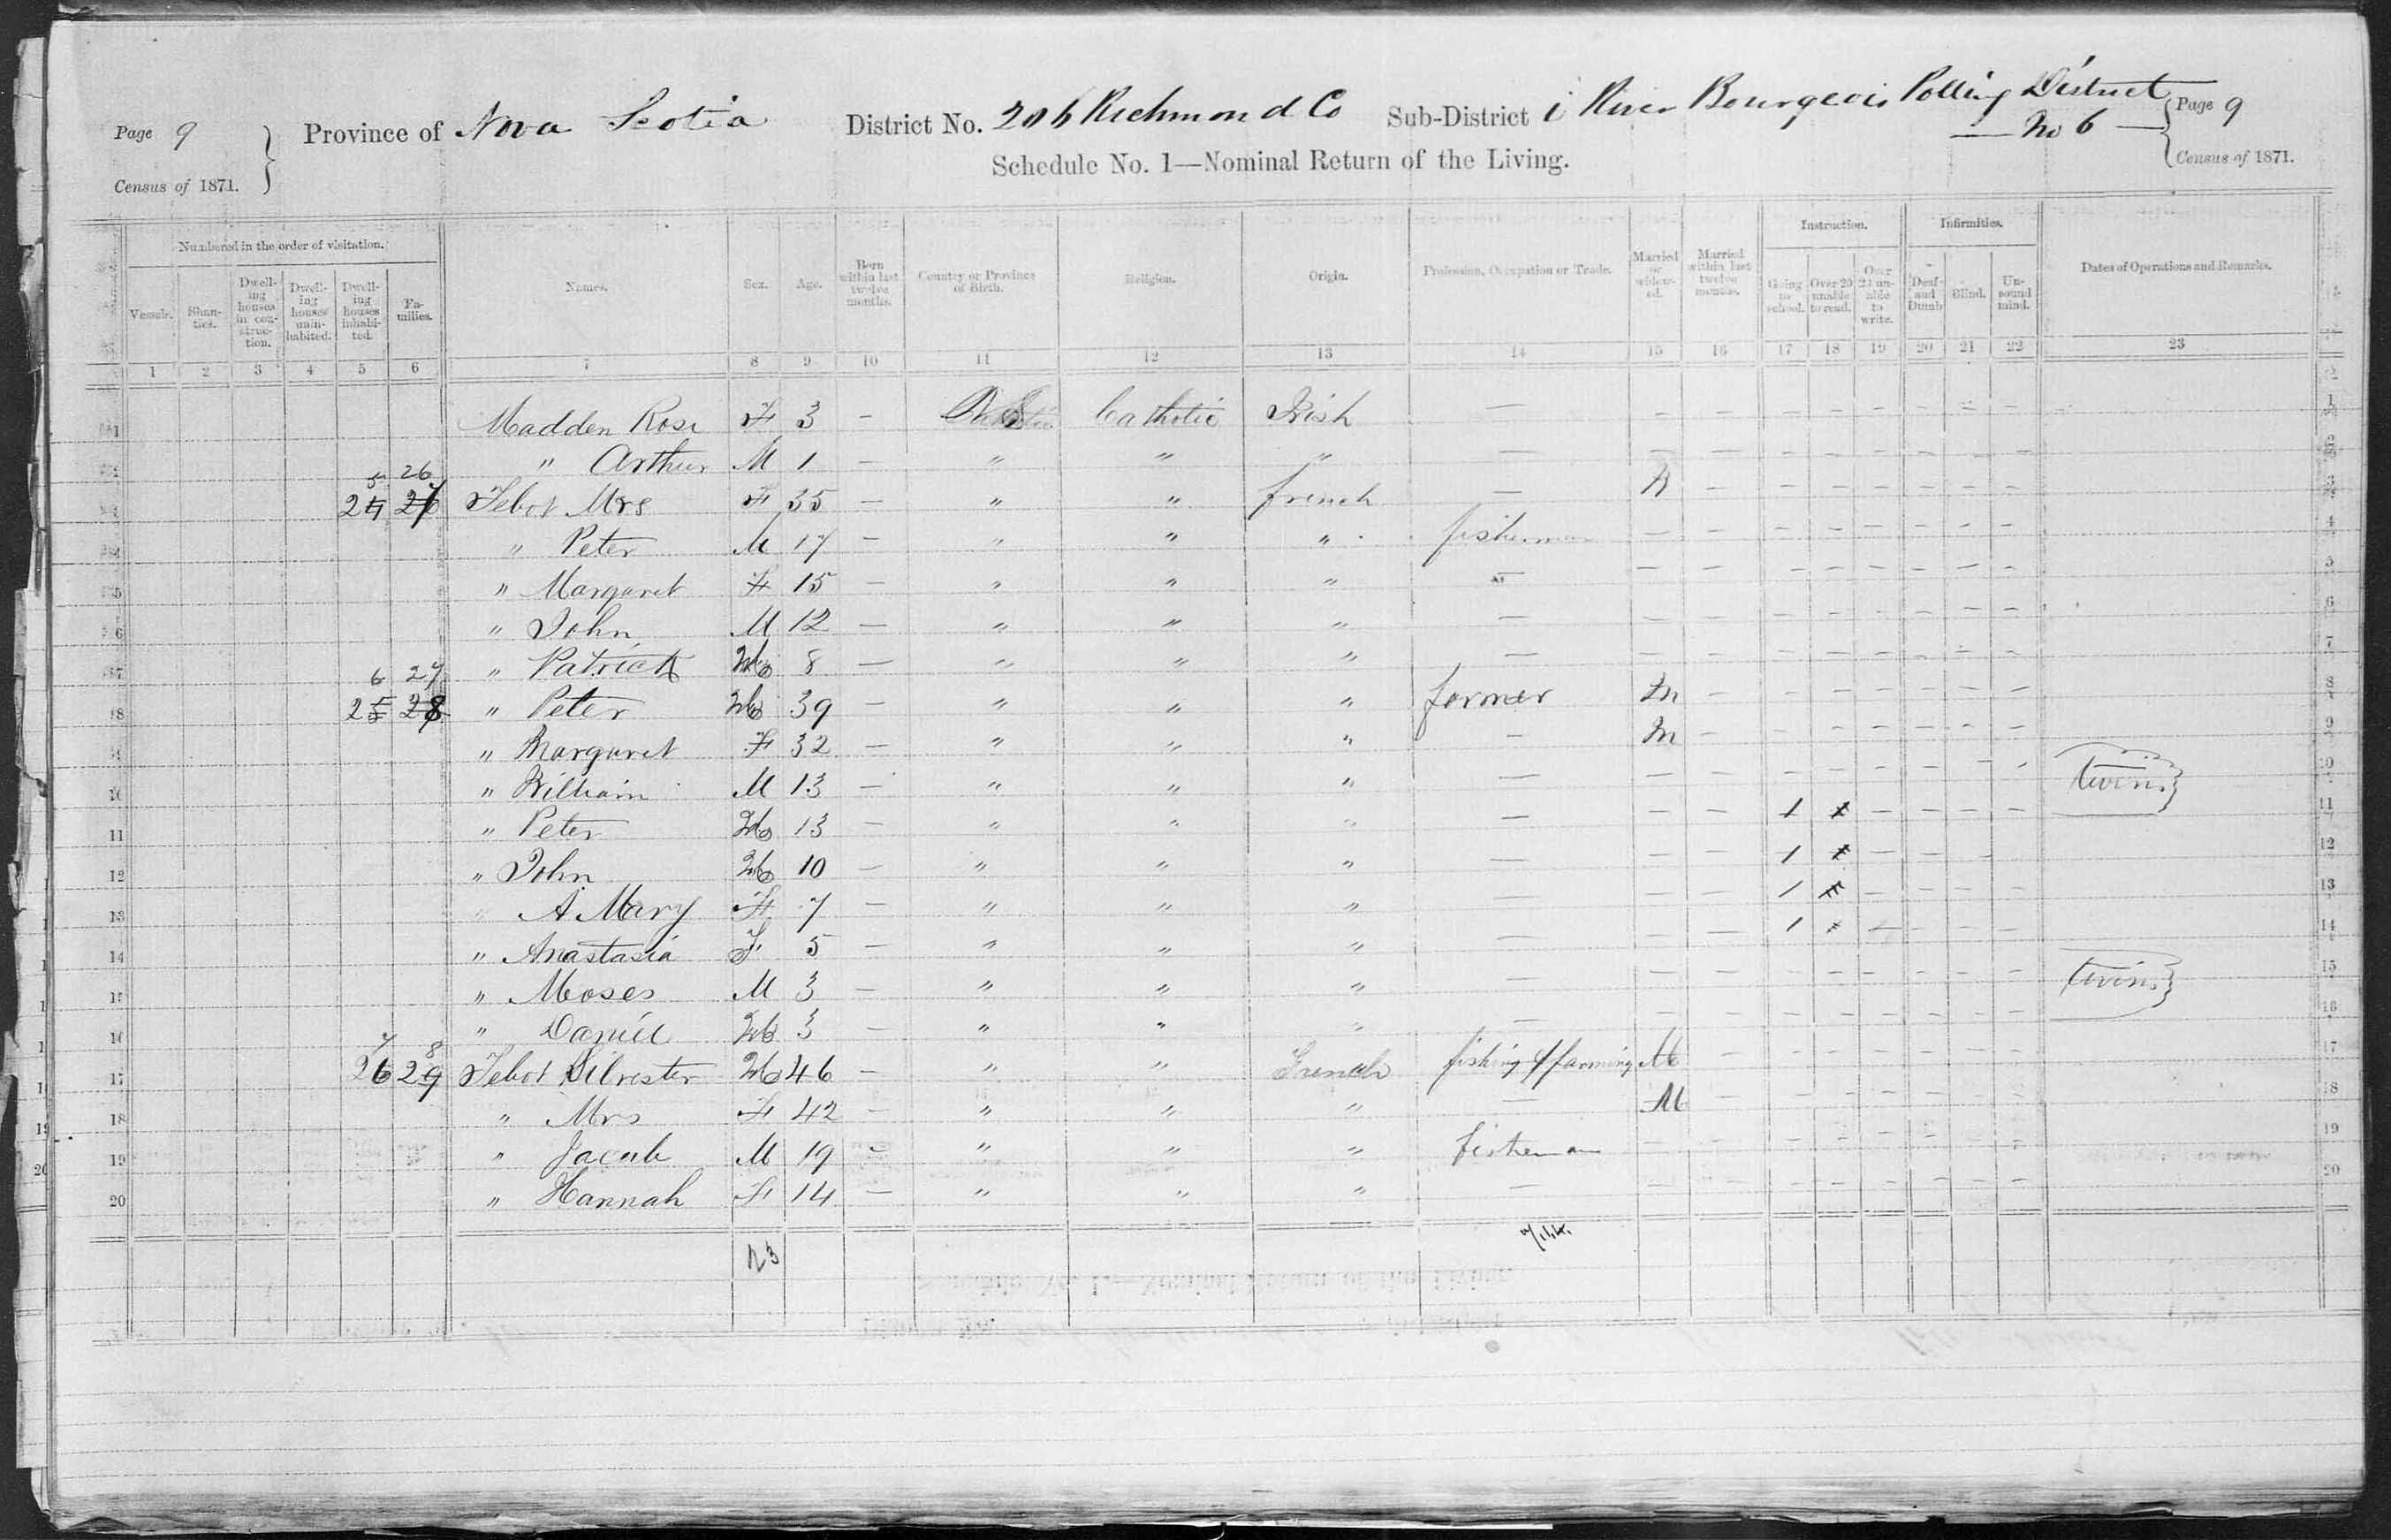 Page 9 Province of Nova Scotia District No. 206 Richmond Co Sub-District i River Bourgeois Polling District Page 9
Census of 1871. — No 6 — Census of 1871.
Schedule No. 1—Nominal Return of the Living.
Numbered in the order of visitation. Names. Sex. Age. Born within last twelve months. Country or Province of Birth. Religion. Origin. Profession, Occupation or Trade. Married or widowed. Married within last twelve months. Instruction. Infirmities. Dates of Operations and Remarks.
Vessels. Shanties. Dwelling houses in construction. Dwelling houses uninhabited. Dwelling houses inhabited. Families. Going to school. Over 20 unable to read. Over 20 unable to write. Deaf and Dumb Blind. Unsound mind.
1 2 3 4 5 6 7 8 9 10 11 12 13 14 15 16 17 18 19 20 21 22 23
1 Madden Rose F 3 — Catholic Irish — — — — — — — — — 1
" Arthur M 1 — " " " — — — — — — — — — 2
26
Tebot Mrs F 35 — " " french — — — — — — — — 3
" Peter M 17 — " " " fisherman — — — — — — — — 4
5 " Margaret F 15 — " " " — — — — — — — — — 5
6 " John M 12 — " " " — — — — — — — — — 6
6 27
7 " Patrick M 8 — " " " — — — — — — — — — 7
8 25 28 " Peter M 39 — " " " farmer M — — — — — — — 8
9 " Margaret F 32 — " " " — M — — — — — — — 9
10 " William M 13 — " " " — — — — — — — — — twins 10
11 " Peter M 13 — " " " — — — 1 — — — — 11
12 " John M 10 — " " " — — — 1 — — — 12
13 " A Mary F 7 — " " " — — — 1 — — — — 13
14 " Anastasia F 5 — " " " — — — 1 — — — — 14
15 " Moses M 3 — " " " — — — — — — — — — twins 15
16 " Daniel M 3 — " " " — — — — — — — — — 16
7 8
17 26 29 Tebot Silvester M 46 — " " French fishing & farming M — — — — — — — 17
18 " Mrs F 42 — " " " — M — — — — — — — 18
19 " Jacob M 19 — " " " fisherman — — — — — — — — 19
20 " Hannah F 14 — " " " — — — — — — — — — 20